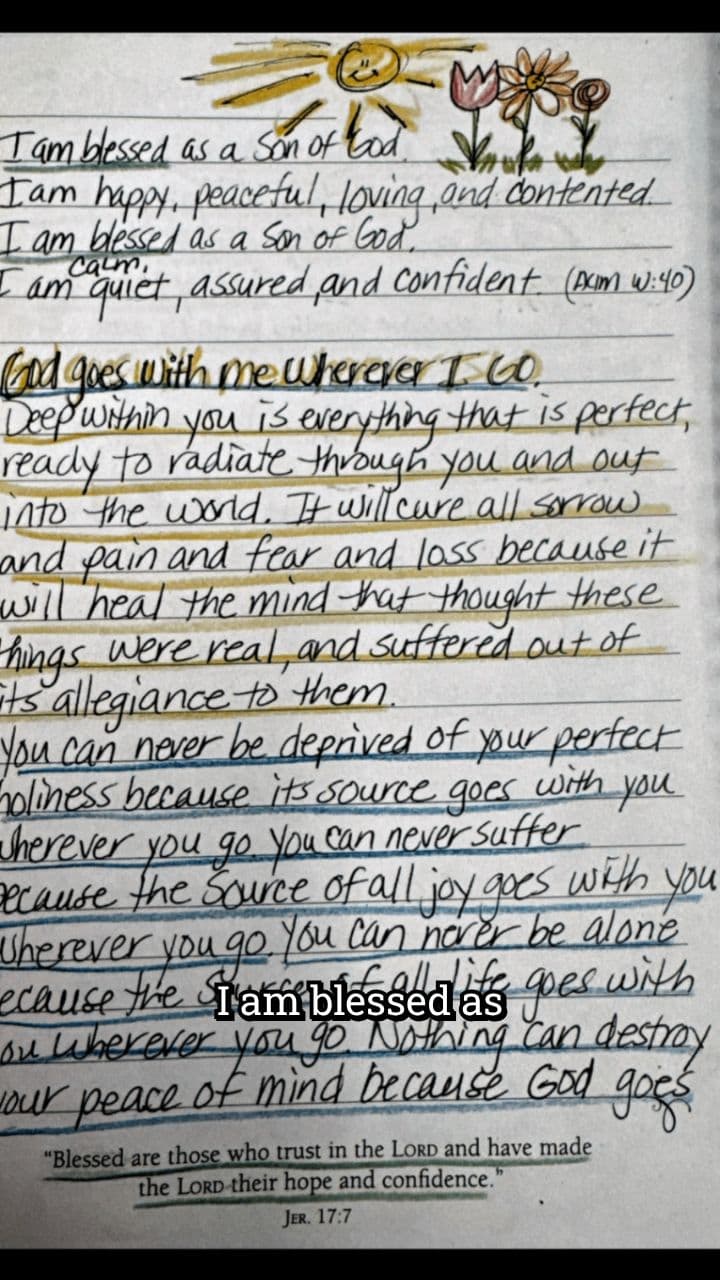 I am blessed as a Son of God.
I am happy, peaceful, loving, and contented.
I am blessed as a Son of God.
calm,
I am quiet, assured, and confident. (ACIM W:40)
God goes with me wherever I GO.
Deep within you is everything that is perfect,
ready to radiate through you and out
into the world. It will cure all sorrow
and pain and fear and loss because it
will heal the mind that thought these
things were real, and suffered out of
its allegiance to them.
You can never be deprived of your perfect
holiness because its source goes with you
wherever you go. You can never suffer
because the Source of all joy goes with you
wherever you go. You can never be alone
ecause the Source of all life goes with
I am blessed as
ou wherever you go. Nothing can destroy
your peace of mind because God goes
"Blessed are those who trust in the LORD and have made
the LORD their hope and confidence."
JER. 17:7